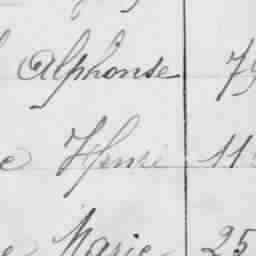 Alphonse
e Henri 11
e Marie 25